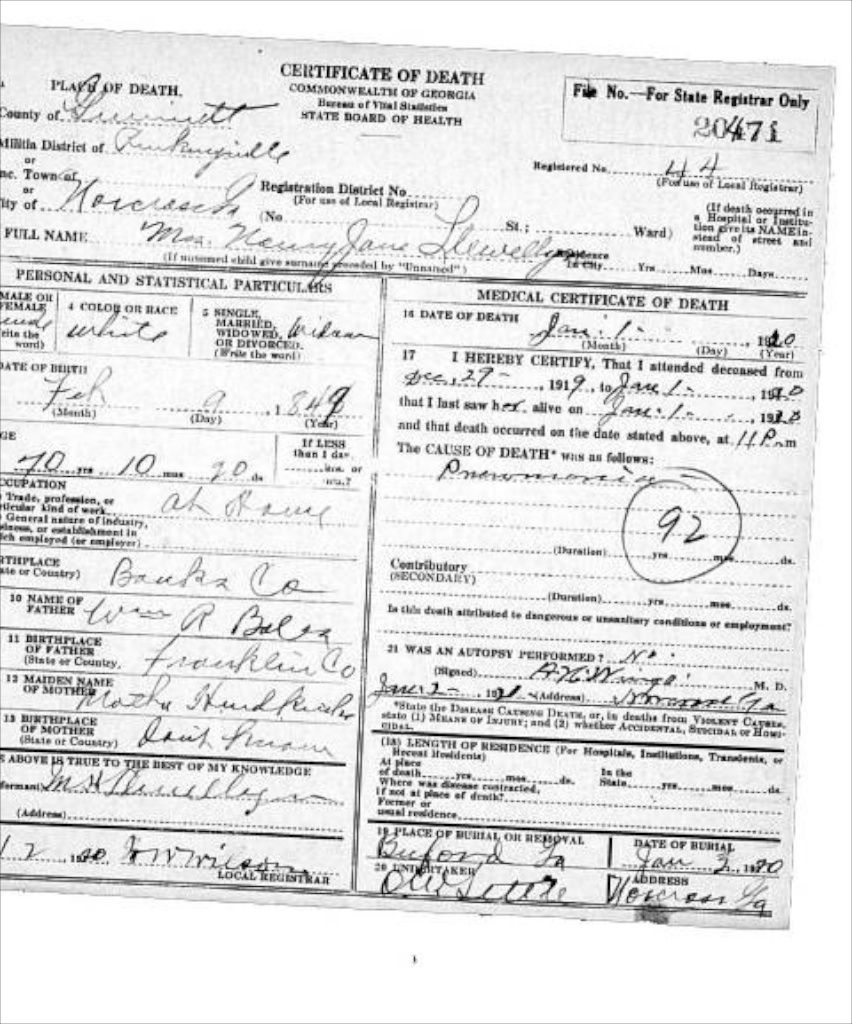 CERTIFICATE OF DEATH
COMMONWEALTH OF GEORGIA
Bureau of Vital Statistics
STATE BOARD OF HEALTH
File No.—For State Registrar Only
20471
PLACE OF DEATH.
County of Gwinnett
Militia District of Pinkneyville
or
nc. Town of
or
ity of Norcross Ga
Registered No. 44
(For use of Local Registrar)
Registration District No
(For use of Local Registrar)
(No St.; Ward)
(If death occurred in
a Hospital or Institu-
tion give its NAME in-
stead of street and
number.)
FULL NAME Mrs. Nancy Jane Llewellyn
(If unnamed child give surname preceded by "Unnamed")
Residence
In City Yrs Mos Days
PERSONAL AND STATISTICAL PARTICULARS
MALE OR
FEMALE
rite the
word)
4 COLOR OR RACE
white
5 SINGLE,
MARRIED,
WIDOWED,
OR DIVORCED.
(Write the word)
Widow
DATE OF BIRTH
Feb 9 1849
(Month) (Day) (Year)
GE
70 yrs 10 mos 20 ds
If LESS
than 1 day
hrs. or
CCUPATION
Trade, profession, or
rticular kind of work
at Home
General nature of industry,
siness, or establishment in
ich employed (or employer)
RTHPLACE
ate or Country)
Banks Co
10 NAME OF
FATHER
Wm R
11 BIRTHPLACE
OF FATHER
(State or Country,
Franklin Co
12 MAIDEN NAME
OF MOTHER
13 BIRTHPLACE
OF MOTHER
(State or Country)
Don't know
E ABOVE IS TRUE TO THE BEST OF MY KNOWLEDGE
formant) M H Llewellyn
(Address)
1 2 1920 W W Wilson
LOCAL REGISTRAR
MEDICAL CERTIFICATE OF DEATH
16 DATE OF DEATH
Jan. 1 1920
(Month) (Day) (Year)
17 I HEREBY CERTIFY, That I attended deceased from
Dec. 29 - , 1919, to Jan 1 - , 1920
that I last saw her alive on Jan. 1 - , 1920
and that death occurred on the date stated above, at 11 P.m
The CAUSE OF DEATH* was as follows:
Pneumonia
92
(Duration) yrs mos ds.
Contributory
(SECONDARY)
(Duration) yrs mos ds.
Is this death attributed to dangerous or unsanitary conditions or employment?
21 WAS AN AUTOPSY PERFORMED? No
(Signed) M. D.
Jan. 2 - 1920 (Address) Norcross Ga
*State the DISEASE CAUSING DEATH, or, in deaths from VIOLENT CAUSES,
state (1) MEANS OF INJURY; and (2) whether ACCIDENTAL, SUICIDAL or HOMI-
CIDAL.
(18) LENGTH OF RESIDENCE (For Hospitals, Institutions, Transients, or
Recent Residents)
At place
of death yrs mos ds.
In the
State yrs mos ds.
Where was disease contracted,
if not at place of death?
Former or
usual residence
19 PLACE OF BURIAL OR REMOVAL
Buford Ga
DATE OF BURIAL
Jan 3, 1920
20 UNDERTAKER
ADDRESS
Norcross Ga